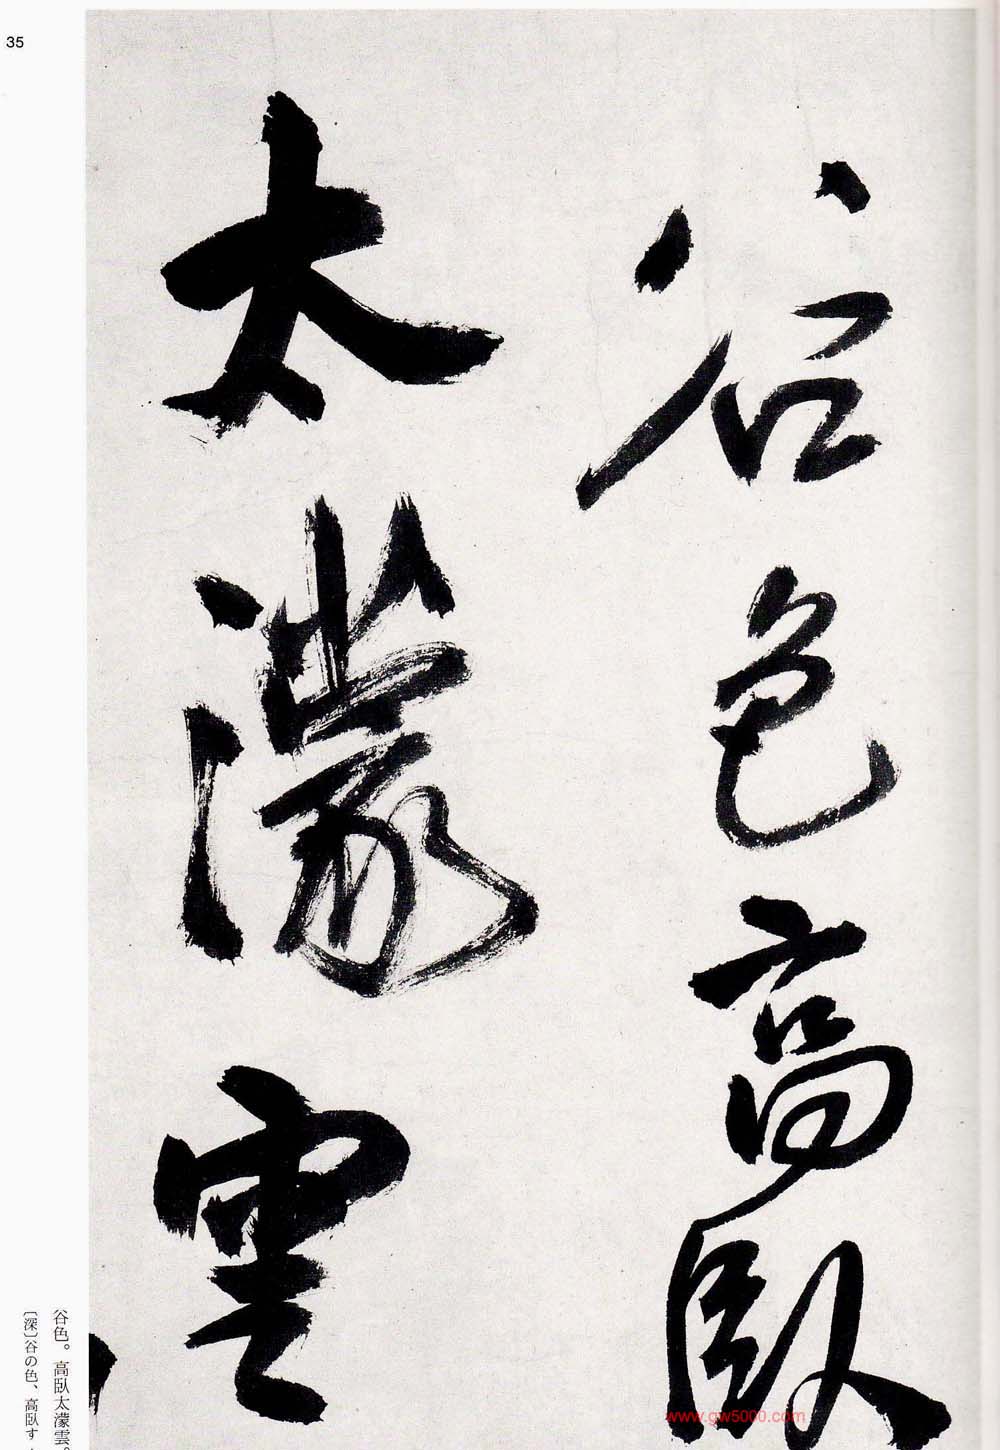 35
谷色高臥
太濛雲
谷色。高臥太濛雲。
〔深〕谷の色、高臥す
www.gw5000.com